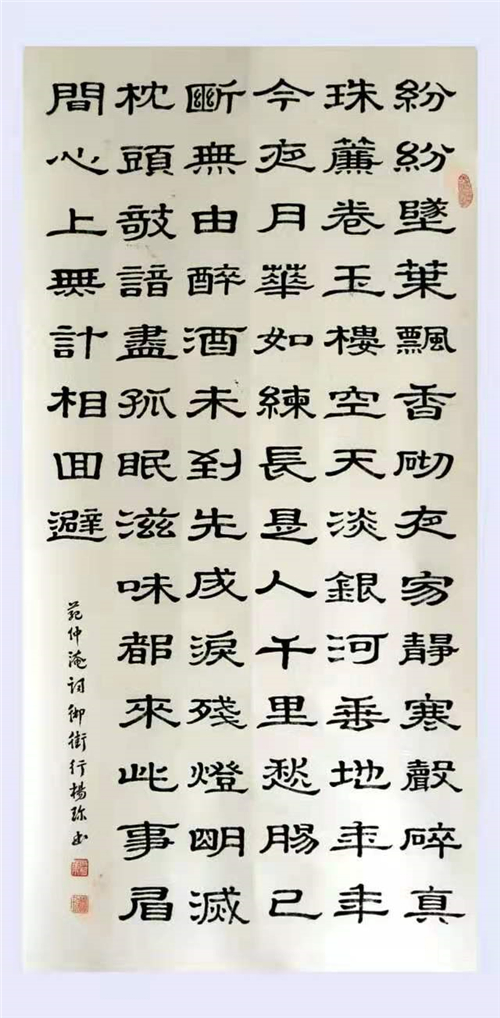 紛紛墜葉飄香砌夜寂靜寒聲碎真
珠簾卷玉樓空天淡銀河垂地年年
今夜月華如練長是人千里愁腸已
斷無由醉酒未到先成淚殘燈明滅
枕頭敧諳盡孤眠滋味都來此事眉
間心上無計相回避
范仲淹詞御街行楊珎书